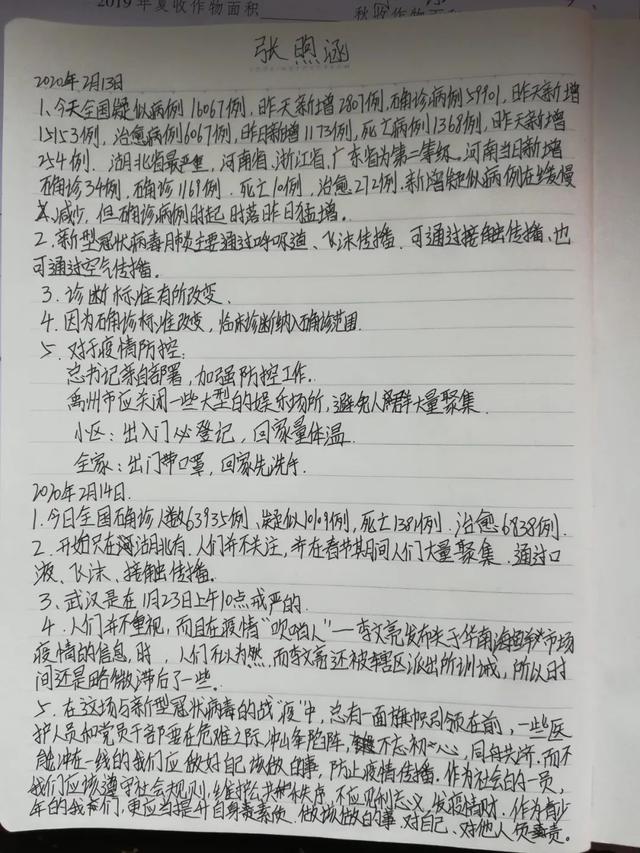 2019年夏收作物面积
秋收作物面积
张照涵
2020年2月13日
1、今天全国疑似病例16067例,昨天新增2807例,确诊病例59901,昨天新增
15153例,治愈病例6067例,昨日新增1173例,死亡病例1368例,昨天新增
254例.湖北省最严重,河南省、浙江省、广东省为第二等级。河南当日新增
确诊34例,确诊1169例.死亡10例,治愈272例.新增疑似病例在缓慢
减少,但确诊病例时起时落昨日猛增。
2.新型冠状病毒肺炎主要通过呼吸道、飞沫传播.可通过接触传播、也
可通过空气传播。
3.诊断标准有所改变、
4.因为确诊标准改变,临床诊断纳入确诊范围.
5.对于疫情防控:
总书记亲自部署,加强防控工作.
禹州市应关闭一些大型的娱乐场所,避免人群大量聚集.
小区:出入门必登记,回家量体温.
全家:出门带口罩,回家先洗手.
2020年2月14日.
1.今日全国确诊人数63935例,疑似10109例,死亡1381例.治愈6838例.
2.开始只在湖北有.人们并不关注,并在春节期间人们大量聚集.通过口
液、飞沫、接触传播。
3、武汉是在1月23日上午10点戒严的.
4.人们并不重视,而且在疫情“吹哨人”—李文亮发布关于华南海鲜市场
疫情的信息时,人们不以为然而李文亮还被辖区派出所训诫,所以时
间还是略微滞后了一些.
5.在这场与新型冠状病毒的战“疫”中,总有一面旗帜引领在前,一些医
护人员和党员干部要在危难之际冲山争险阵,不忘初心,同舟共济.而不
能冲在一线的我们应做好自己该做的事,防止疫情传播.作为社会的一员,
我们应该遵守社会规则,维护公共秩序,不应见利忘义,发疫情财.作为青少
年的我们,更应当提升自身素质.做该做的事.对自己、对他人负责。